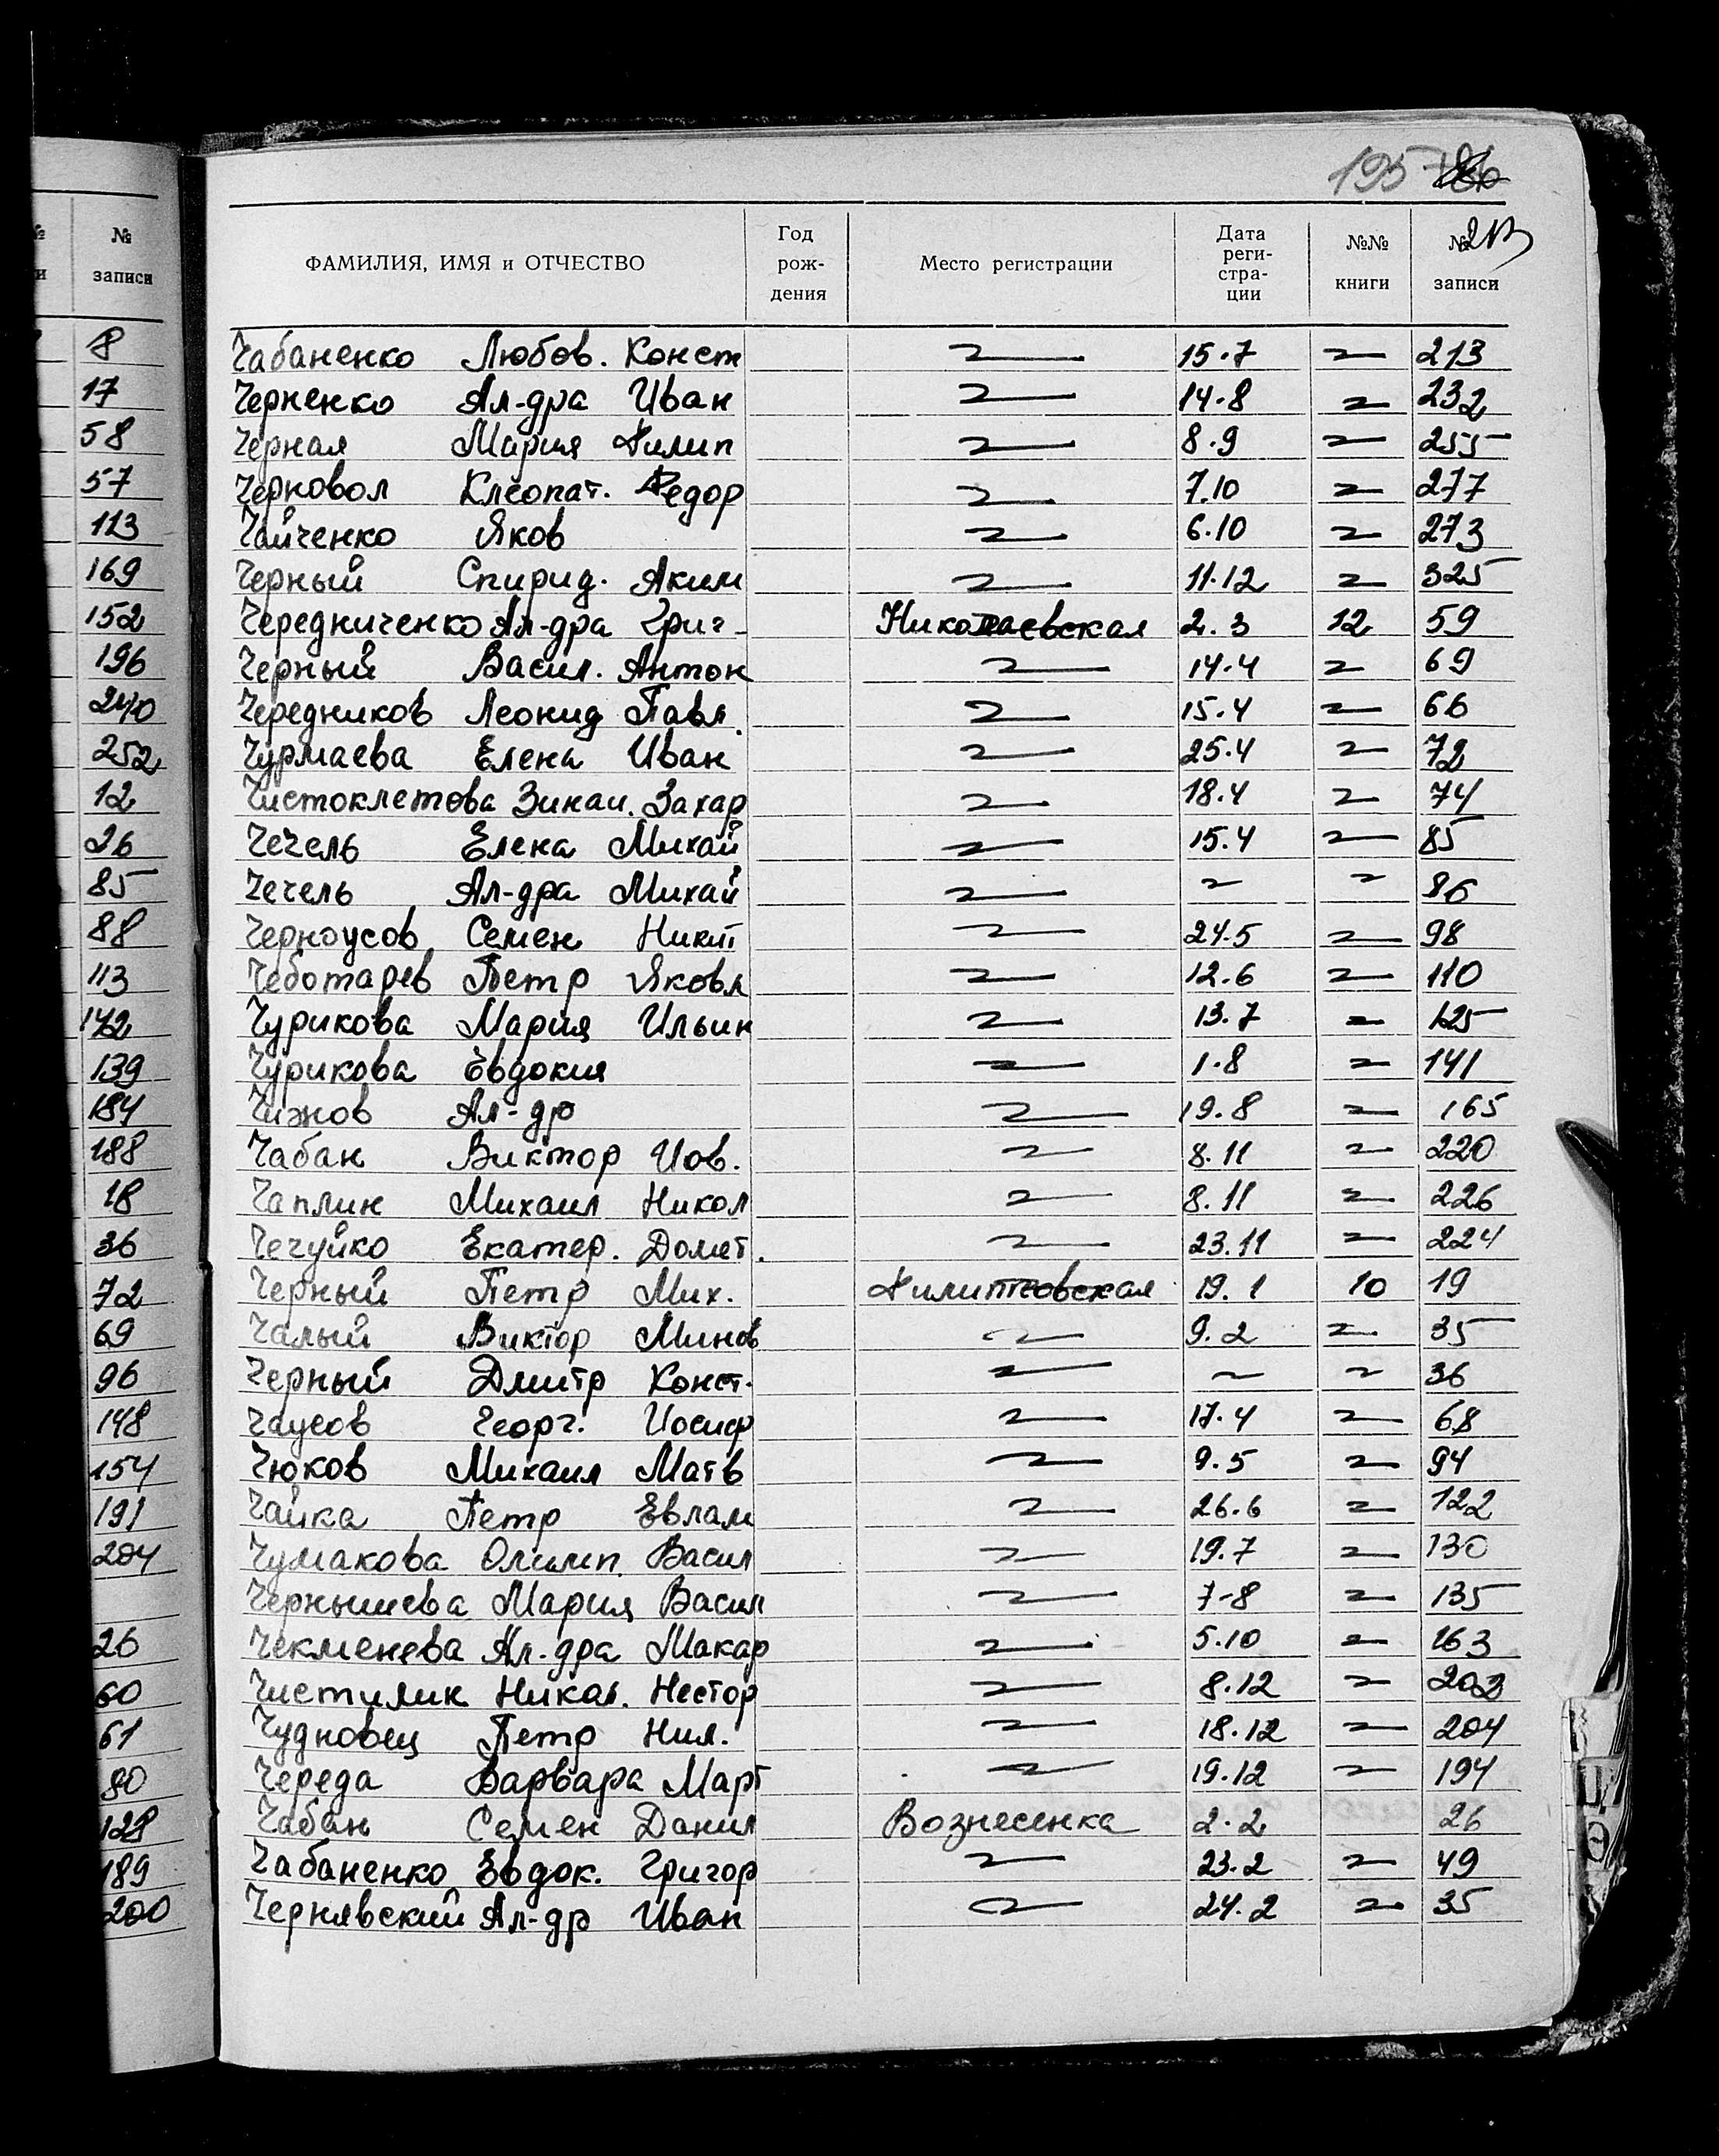 195
213
№
записи
8
17
58
57
113
169
152
196
240
252
12
26
85
88
113
142
139
184
188
18
36
72
69
96
148
154
191
204
26
60
61
80
128
189
200
ФАМИЛИЯ, ИМЯ и ОТЧЕСТВО Год рождения Место регистрации Дата регистрации №№ книги № записи
Чабаненко Любов. Конст 〃 15.7 〃 213
Черненко Ал-дра Иван 〃 14.8 〃 232
Черная Мария Филип 〃 8.9 〃 255
Черновол Клеопат. Федор 〃 7.10 〃 277
Чайченко Яков 〃 6.10 〃 273
Черный Спирид. Аким 〃 11.12 〃 325
Чередниченко Ал-дра Григ Николаевская 2.3 12 59
Черный Васил. Антон 〃 14.4 〃 69
Чередников Леонид Павл 〃 15.4 〃 66
Чурмаева Елена Иван 〃 25.4 〃 72
Чистоклетова Зинаи. Захар 〃 18.4 〃 74
Чечель Елена Михай 〃 15.4 〃 85
Чечель Ал-дра Михай 〃 〃 〃 86
Черноусов Семен Никит 〃 24.5 〃 98
Чеботарев Петр Яковл 〃 12.6 〃 110
Чурикова Мария Ильин 〃 13.7 〃 125
Чурикова Евдокия 〃 1.8 〃 141
Чижов Ал-др 〃 19.8 〃 165
Чабан Виктор Иов. 〃 8.11 〃 220
Чаплин Михаил Никол 〃 8.11 〃 226
Чечуйко Екатер. Домет. 〃 23.11 〃 224
Черный Петр Мих. Филипповская 19.1 10 19
Чалый Виктор Минов 〃 9.2 〃 35
Черный Дмитр Конст. 〃 〃 〃 36
Чаусов Георг. Иосиф 〃 17.4 〃 68
Чюков Михаил Матв 〃 9.5 〃 94
Чайка Петр Евлам 〃 26.6 〃 122
Чумакова Олимп. Васил 〃 19.7 〃 130
Чернышева Мария Васил 〃 7-8 〃 135
Чекменева Ал.дра Макар 〃 5.10 〃 163
Чистилин Никол. Нестор 〃 8.12 〃 203
Чудновец Петр Нил. 〃 18.12 〃 204
Череда Варвара Март 〃 19.12 〃 194
Чабан Семен Данил Вознесенка 2.2 26
Чабаненко Евдок. Григор 〃 23.2 〃 49
Чернявский Ал-др Иван 〃 24.2 〃 35